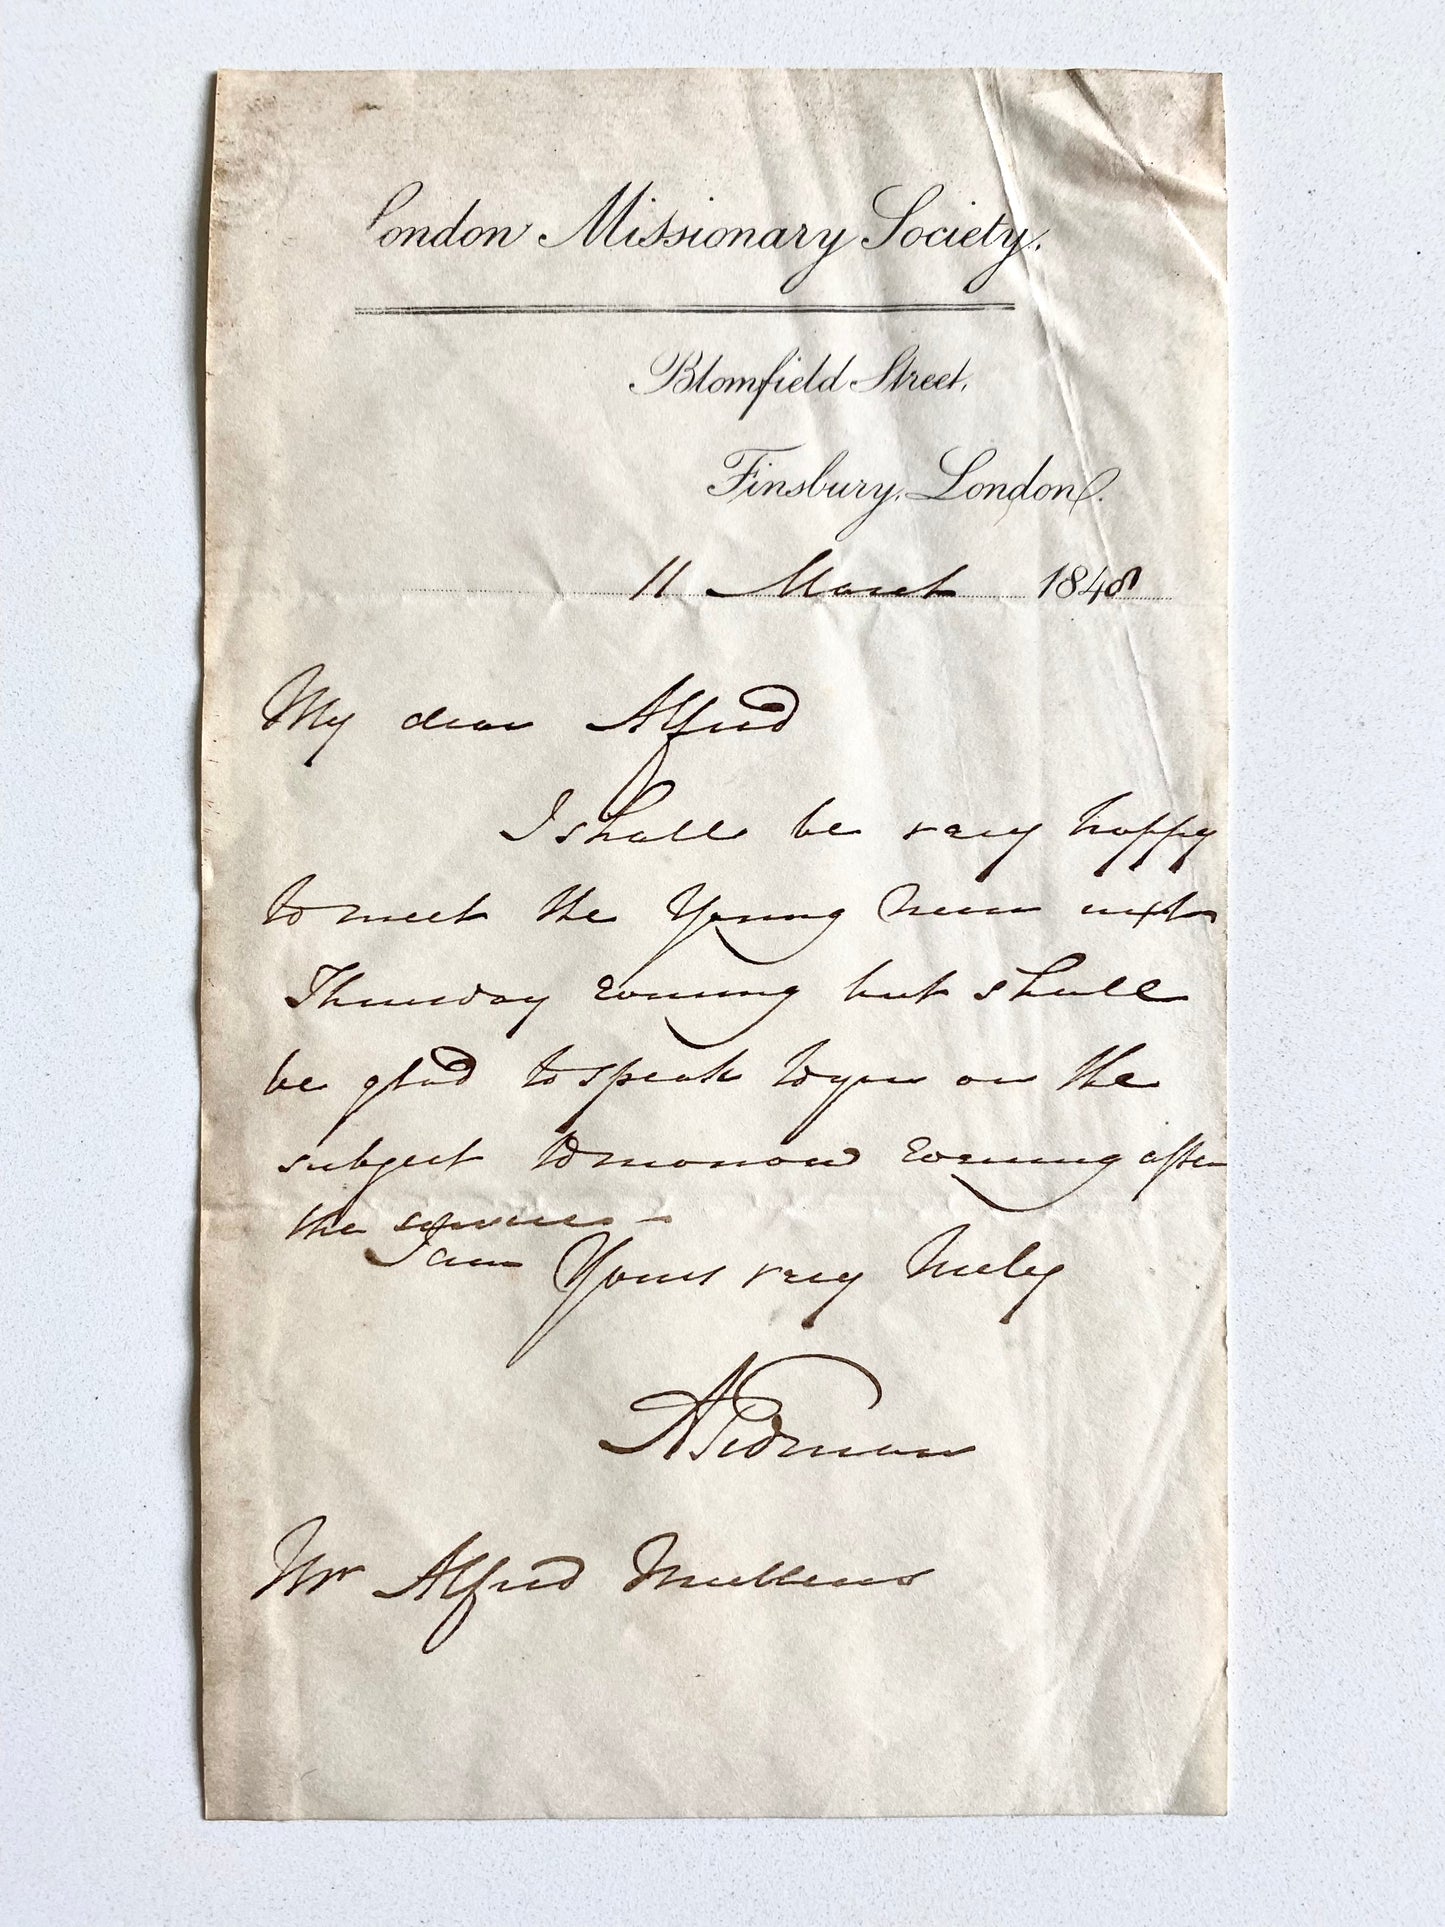 London Missionary Society.
Blomfield Street,
Finsbury, London.
11 March 1848
My dear Alfred
I shall be very happy
to meet the Young Men next
Thursday Evening but shall
be glad to speak to you on the
subject tomorrow Evening after
the service –
I am Yours very truly
A Tidman
Mr Alfred Mullens